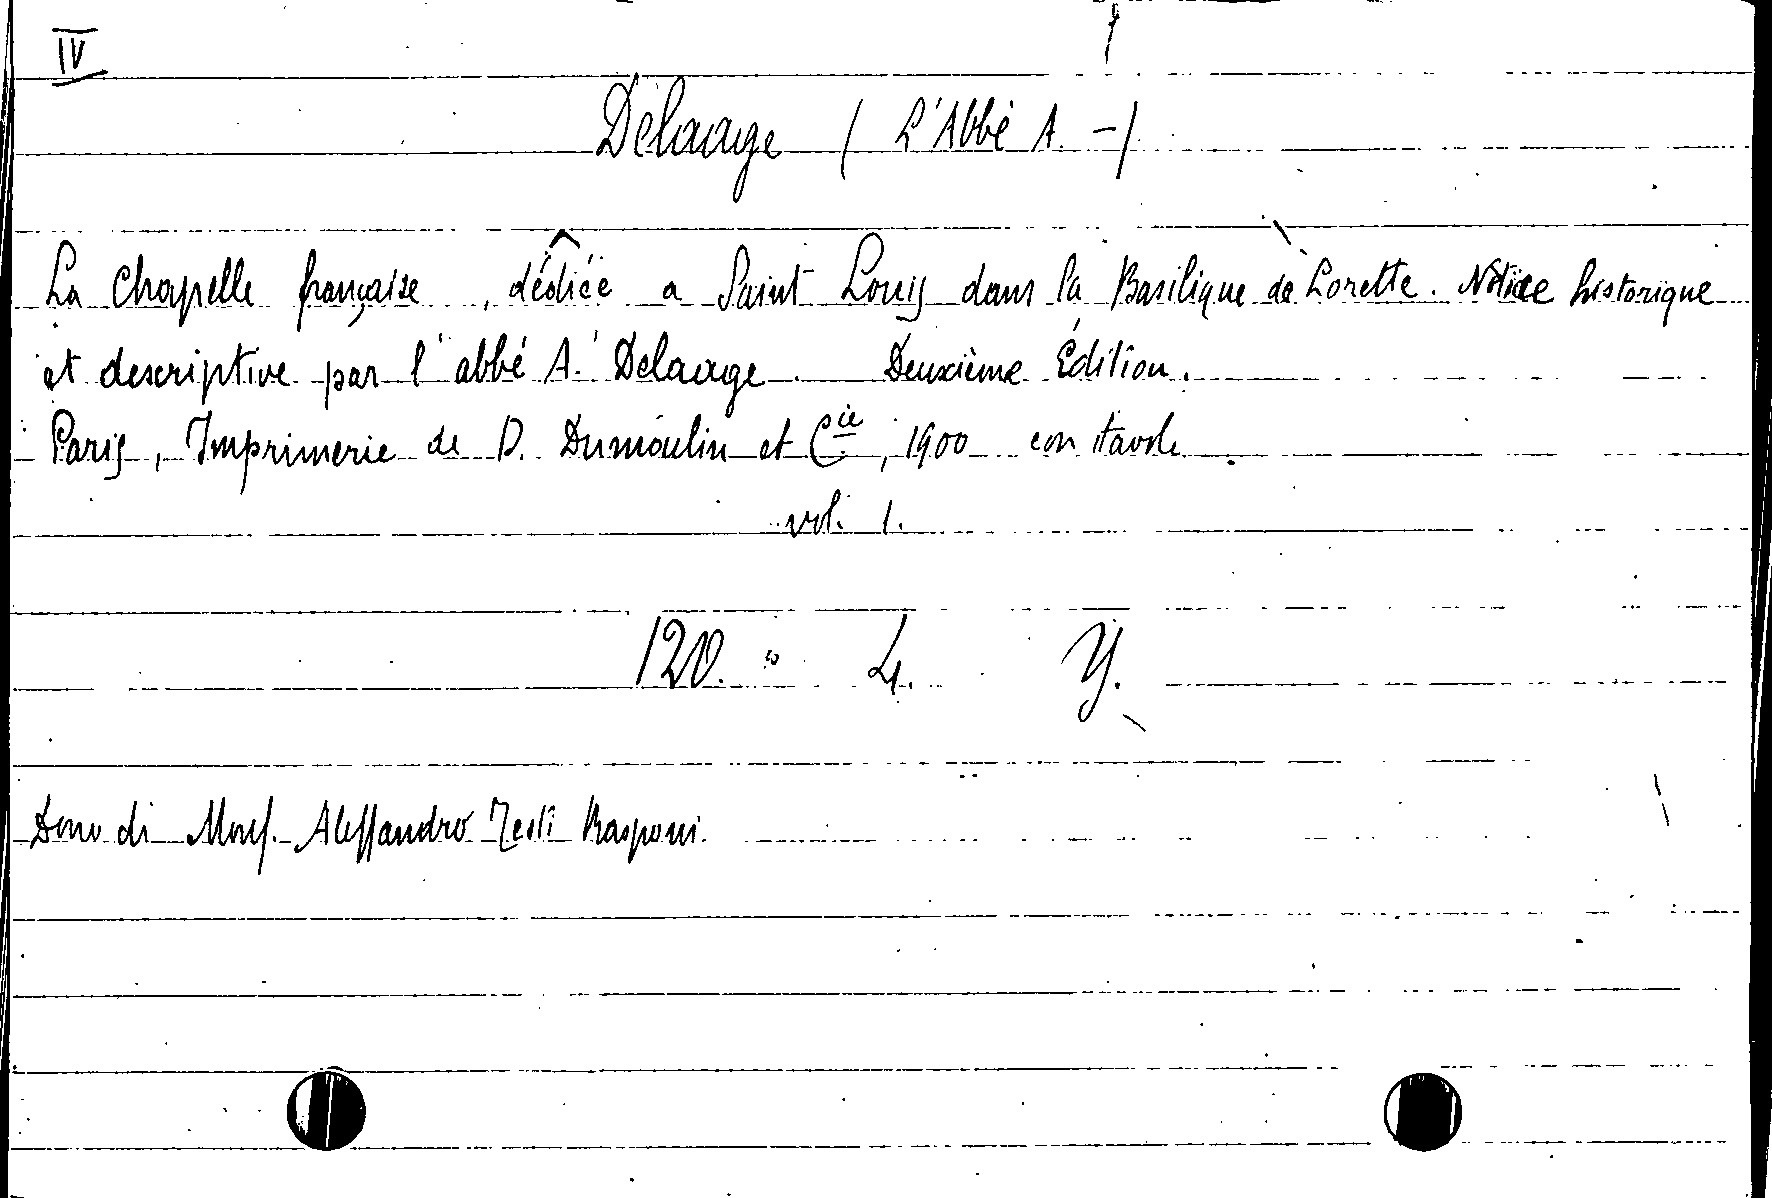 IV
Delaage ( L'Abbé A. -)
La Chapelle française, dédiée a Saint Louis dans la Basilique de Lorette. Notice historique
et descriptive par l'abbé A. Delaage. Deuxième Édition.
Paris, Imprimerie de D. Dumoulin et Cie, 1900 con tavole
vol. 1.
120. " 4. Y.
Dono di Mons. Alessandro Testi Rasponi.